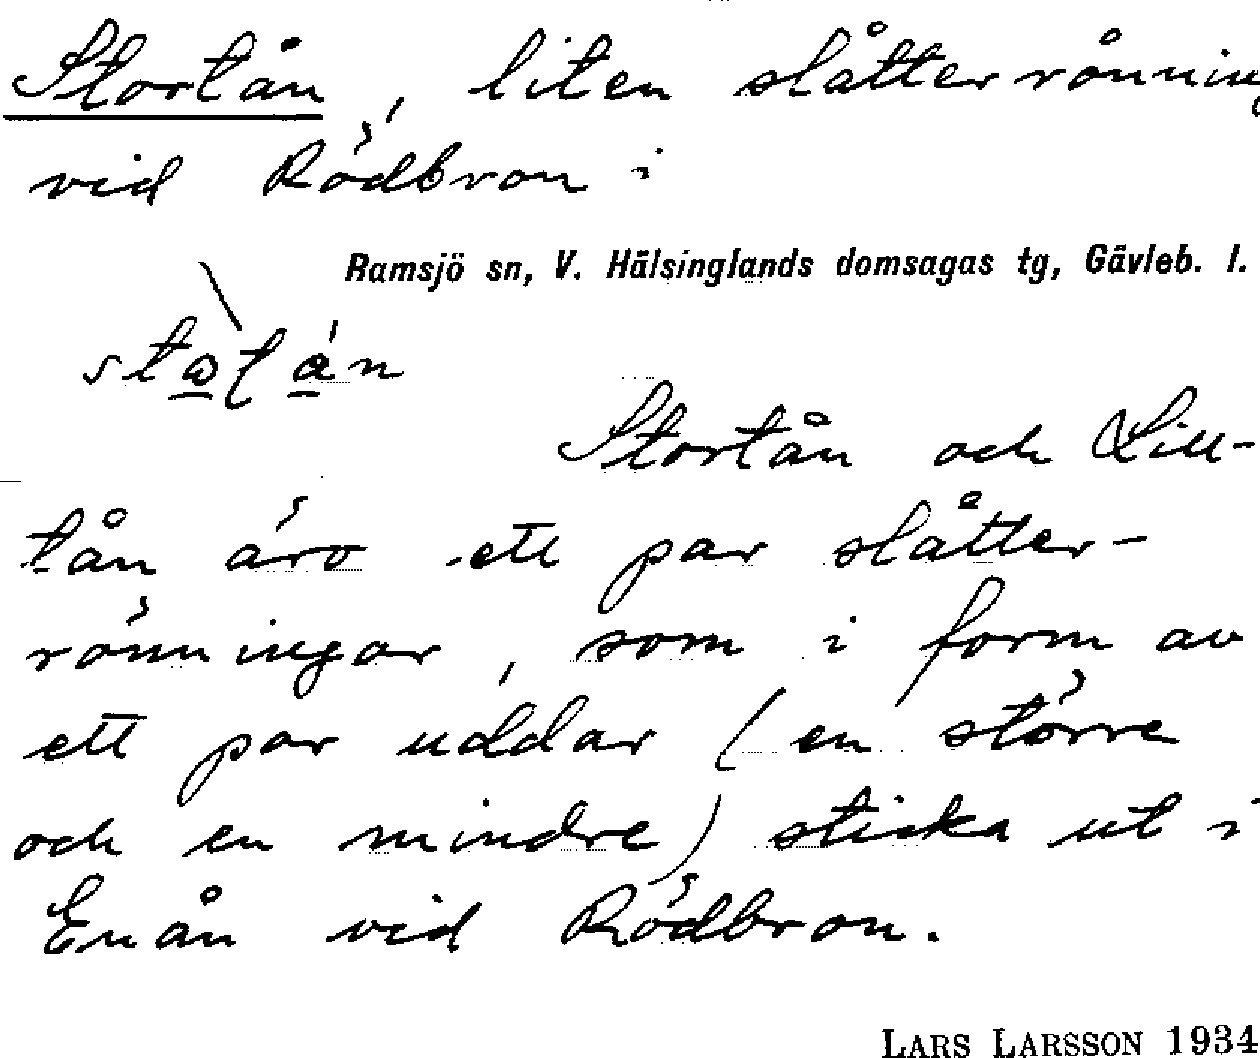 Stortån, liten slåtterrönning
vid Rödbron i
Ramsjö sn, V. Hälsinglands domsagas tg, Gävleb. l.
Stortån och Lill-
tån äro ett par slåtter-
rönningar, som i form av
ett par uddar (en större
och en mindre) sticka ut i
Enån vid Rödbron.
LARS LARSSON 1934